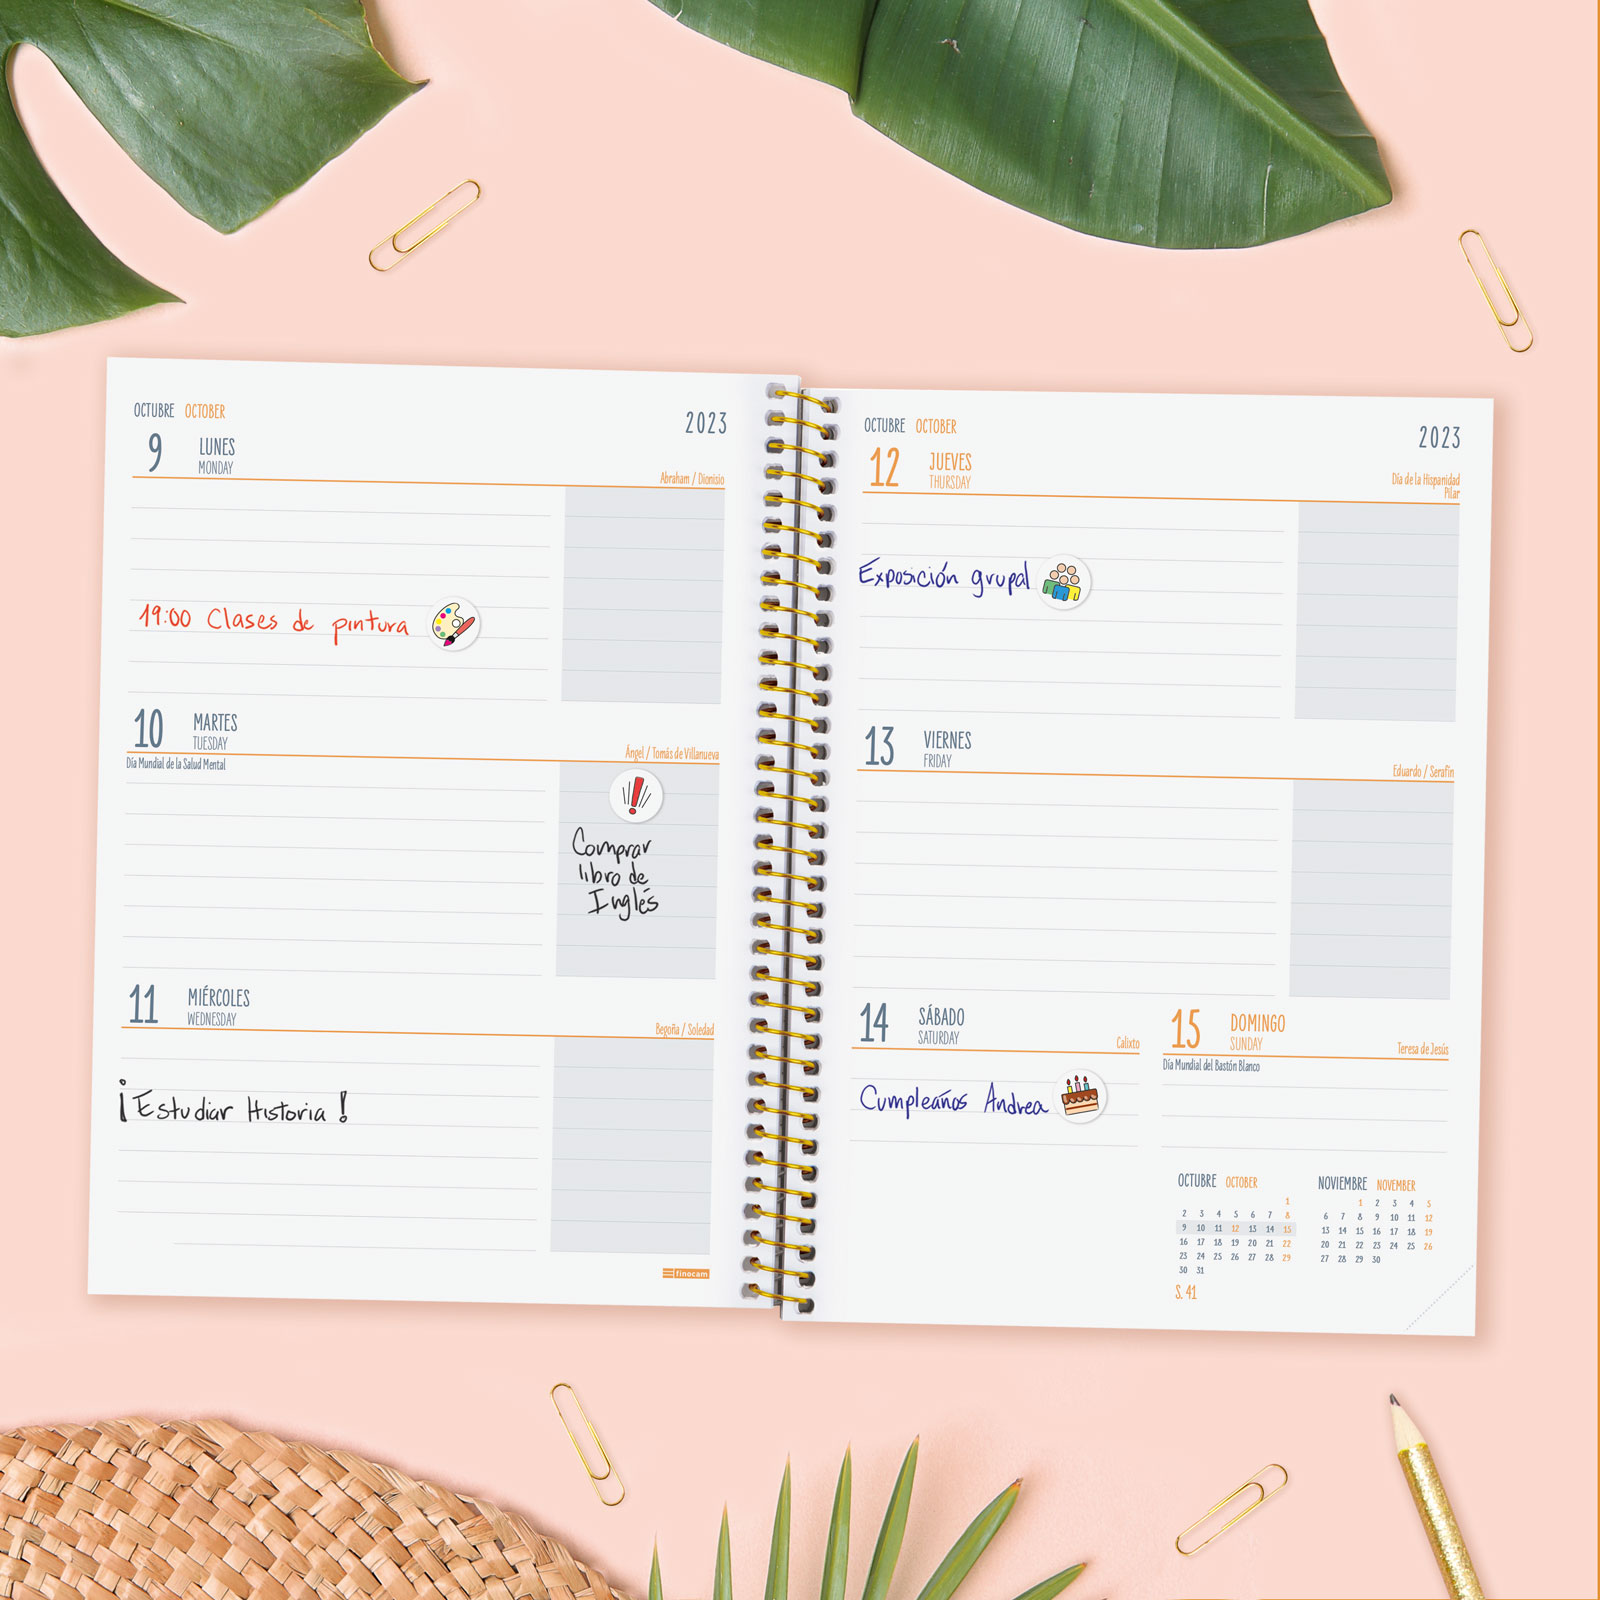 OCTUBRE OCTOBER
2023
9 LUNES
MONDAY
Abraham / Dionisio
19:00 Clases de pintura
10 MARTES
TUESDAY
Ángel / Tomás de Villanueva
Día Mundial de la Salud Mental
Comprar
libro de
Inglés
11 MIÉRCOLES
WEDNESDAY
Begoña / Soledad
¡Estudiar Historia!
finocam
OCTUBRE OCTOBER
2023
12 JUEVES
THURSDAY
Día de la Hispanidad
Pilar
Exposición grupal
13 VIERNES
FRIDAY
Eduardo / Serafín
14 SÁBADO
SATURDAY
Calixto
Cumpleaños Andrea
15 DOMINGO
SUNDAY
Teresa de Jesús
Día Mundial del Bastón Blanco
OCTUBRE OCTOBER
1
2 3 4 5 6 7 8
9 10 11 12 13 14 15
16 17 18 19 20 21 22
23 24 25 26 27 28 29
30 31
S. 41
NOVIEMBRE NOVEMBER
1 2 3 4 5
6 7 8 9 10 11 12
13 14 15 16 17 18 19
20 21 22 23 24 25 26
27 28 29 30